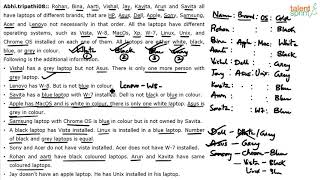 talent
Abhi.tripathi08:: Rohan, Bina, Aarti, Vishal, Jay, Kavita, Arun and Savita
have laptops of different brands, that are HP, Asus, Dell, Apple, Sony, Samsung,
Acer and Lenovo not necessarily in that order. All the laptops have different
operating systems, such as Vista, W-8, MacOs, Xp, W-7, Linux, Unix, and
Chrome OS installed on each one of them. All laptops are either white, black,
blue, or grey in colour.
Following is the additional information about them.
• Vishal has a grey laptop but not Asus. There is only one more person with
grey laptop.
• Lenovo has W-8. But is not blue in colour.
Lenovo - W8 -
• Savita has a blue laptop with W-7 installed. Dell is not black or blue in colour.
• Apple has MacOS and is white in colour, there is only one white laptop. Asus is
grey in colour.
• Samsung laptop with Chrome OS is blue in colour but is not owned by Savita.
• A black laptop has Vista installed. Linux is installed in a blue laptop. Number
of black and grey is equal.
• Sony and Acer do not have vista installed. Acer does not have W-7 installed.
• Rohan and aarti have black coloured laptops. Arun and Kavita have same
coloured laptops.
• Jay doesn't have an apple laptop. He has Unix installed in his laptop.
Name: Brand: OS: Color
Rohan: : : Black
Bina: Apple: Mac: White
Black
Grey
Blue
W7: Blue
Asus - Grey
Samsung - Chrom - Blue
Vista - Black